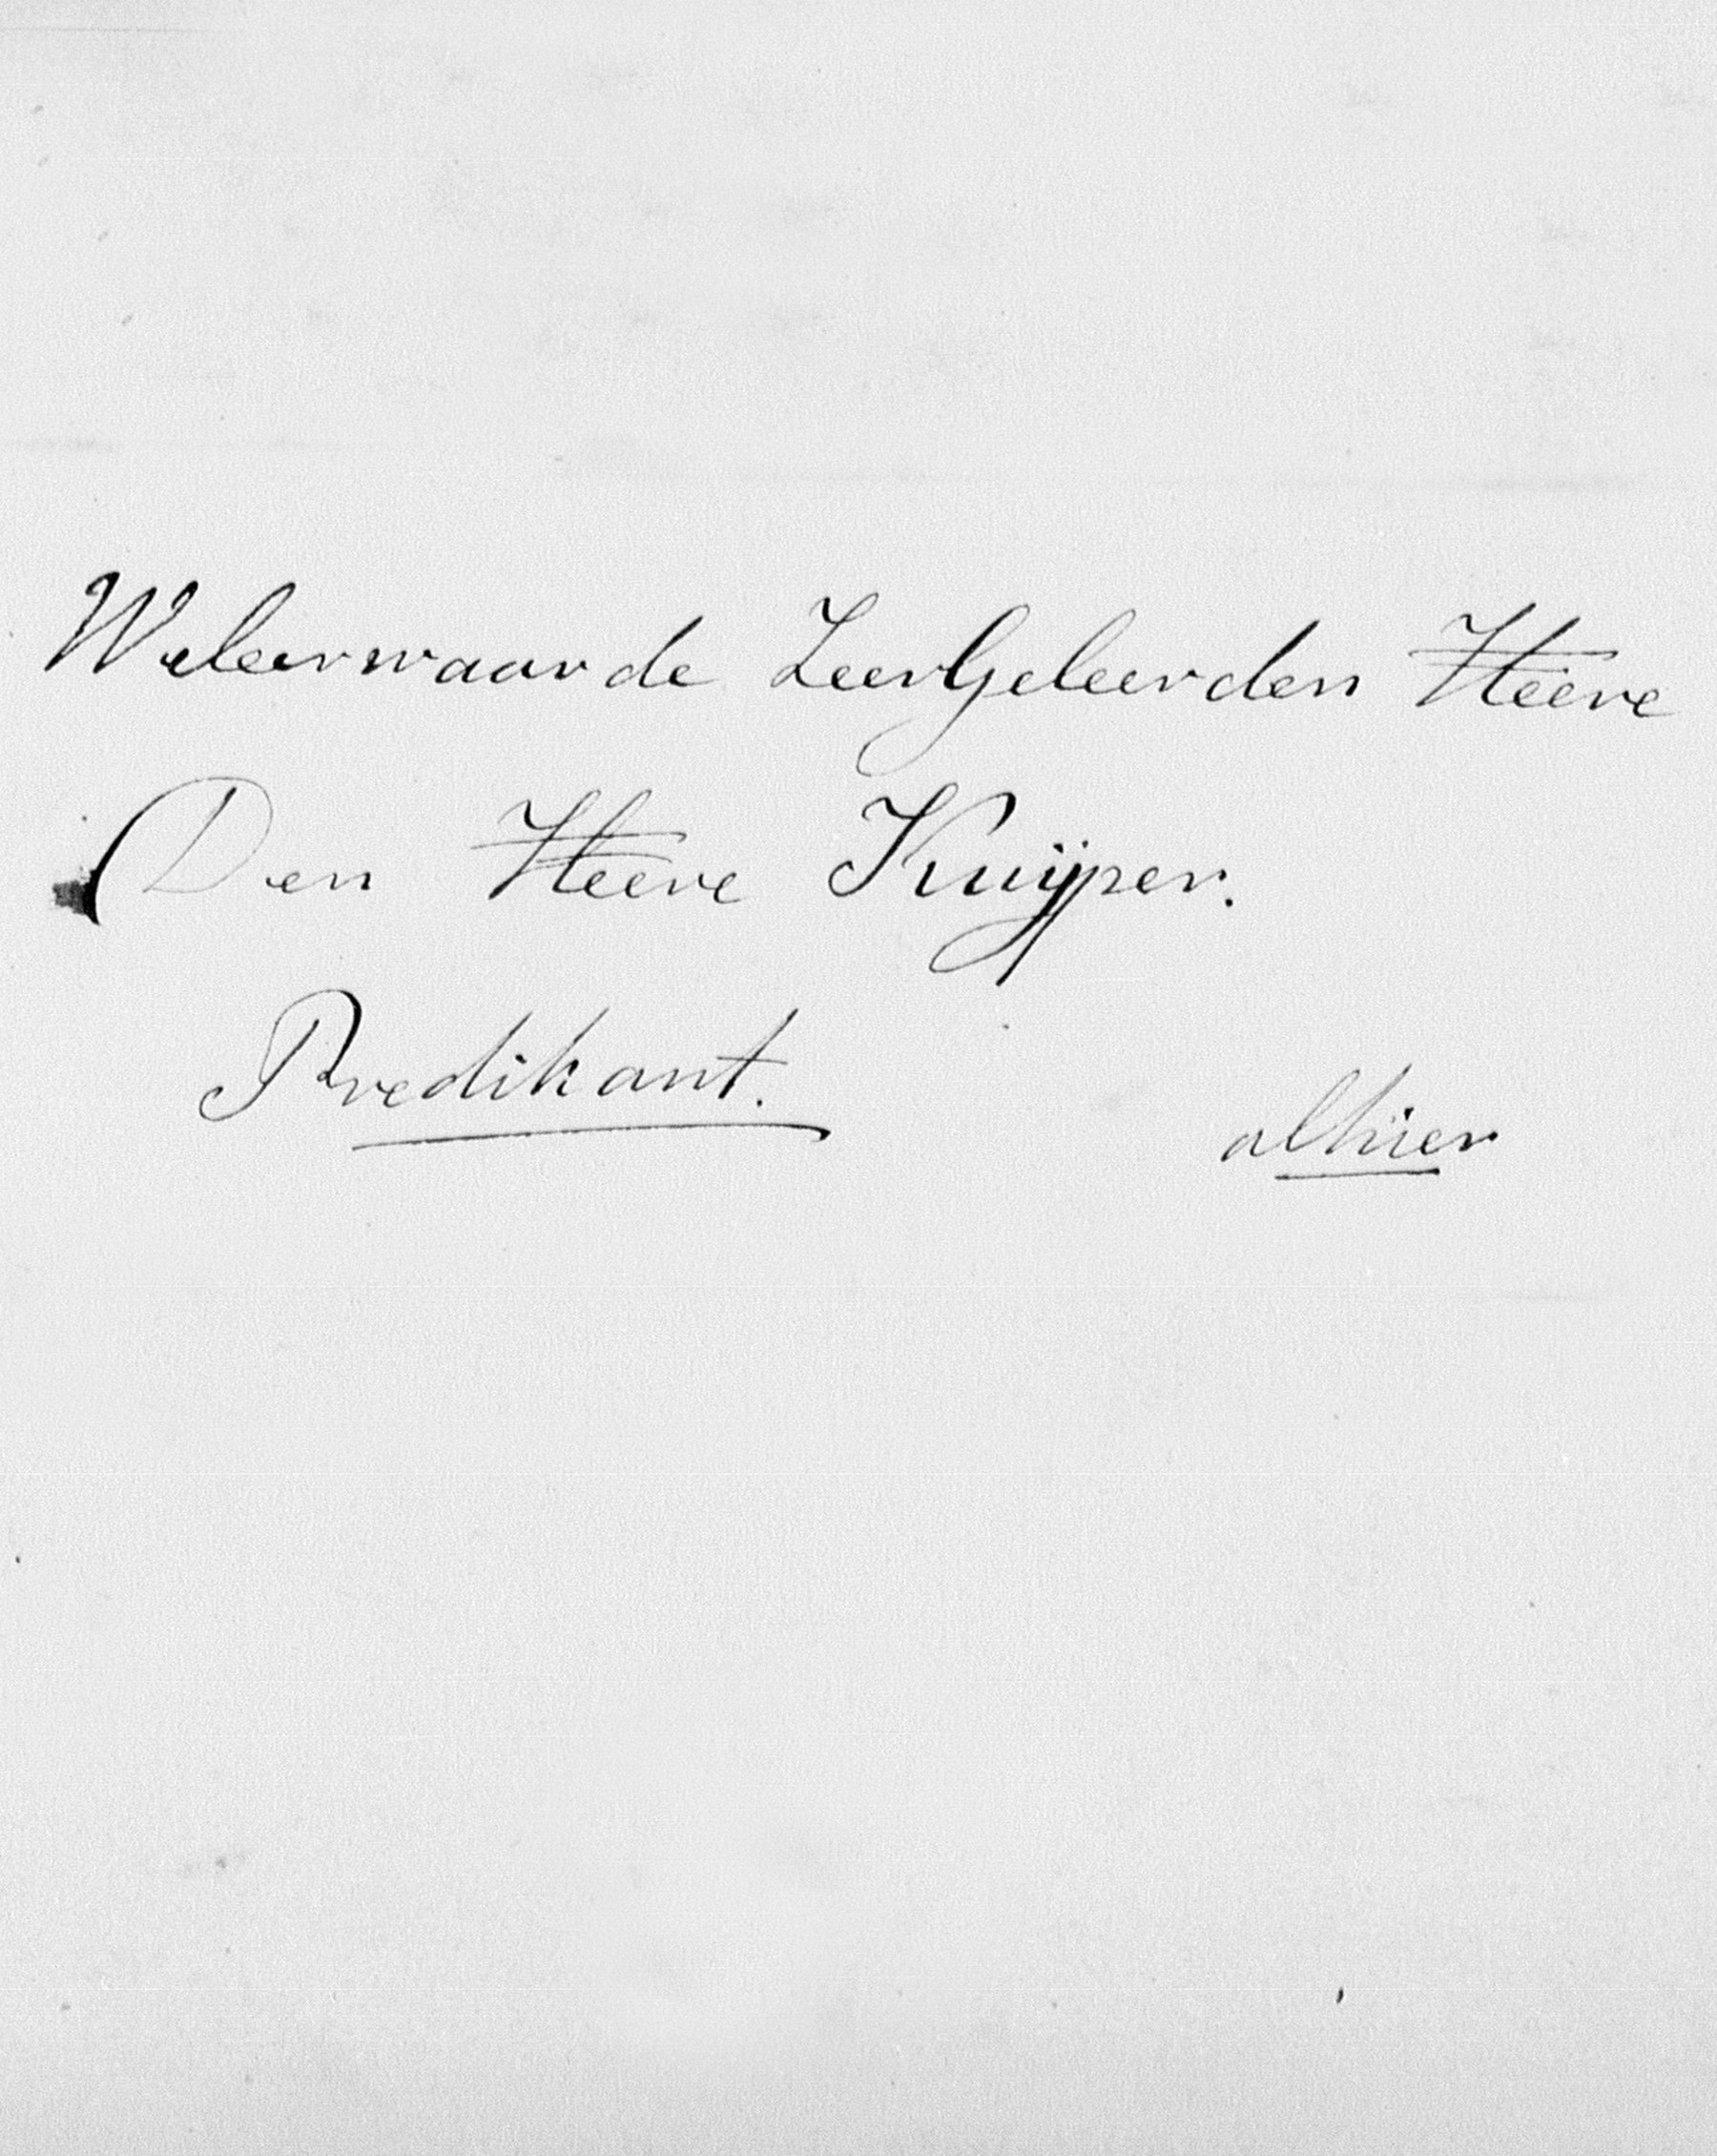 Weleerwaarde ZeerGeleerden Heere
Den Heere Kuijper.
Predikant.
alhier